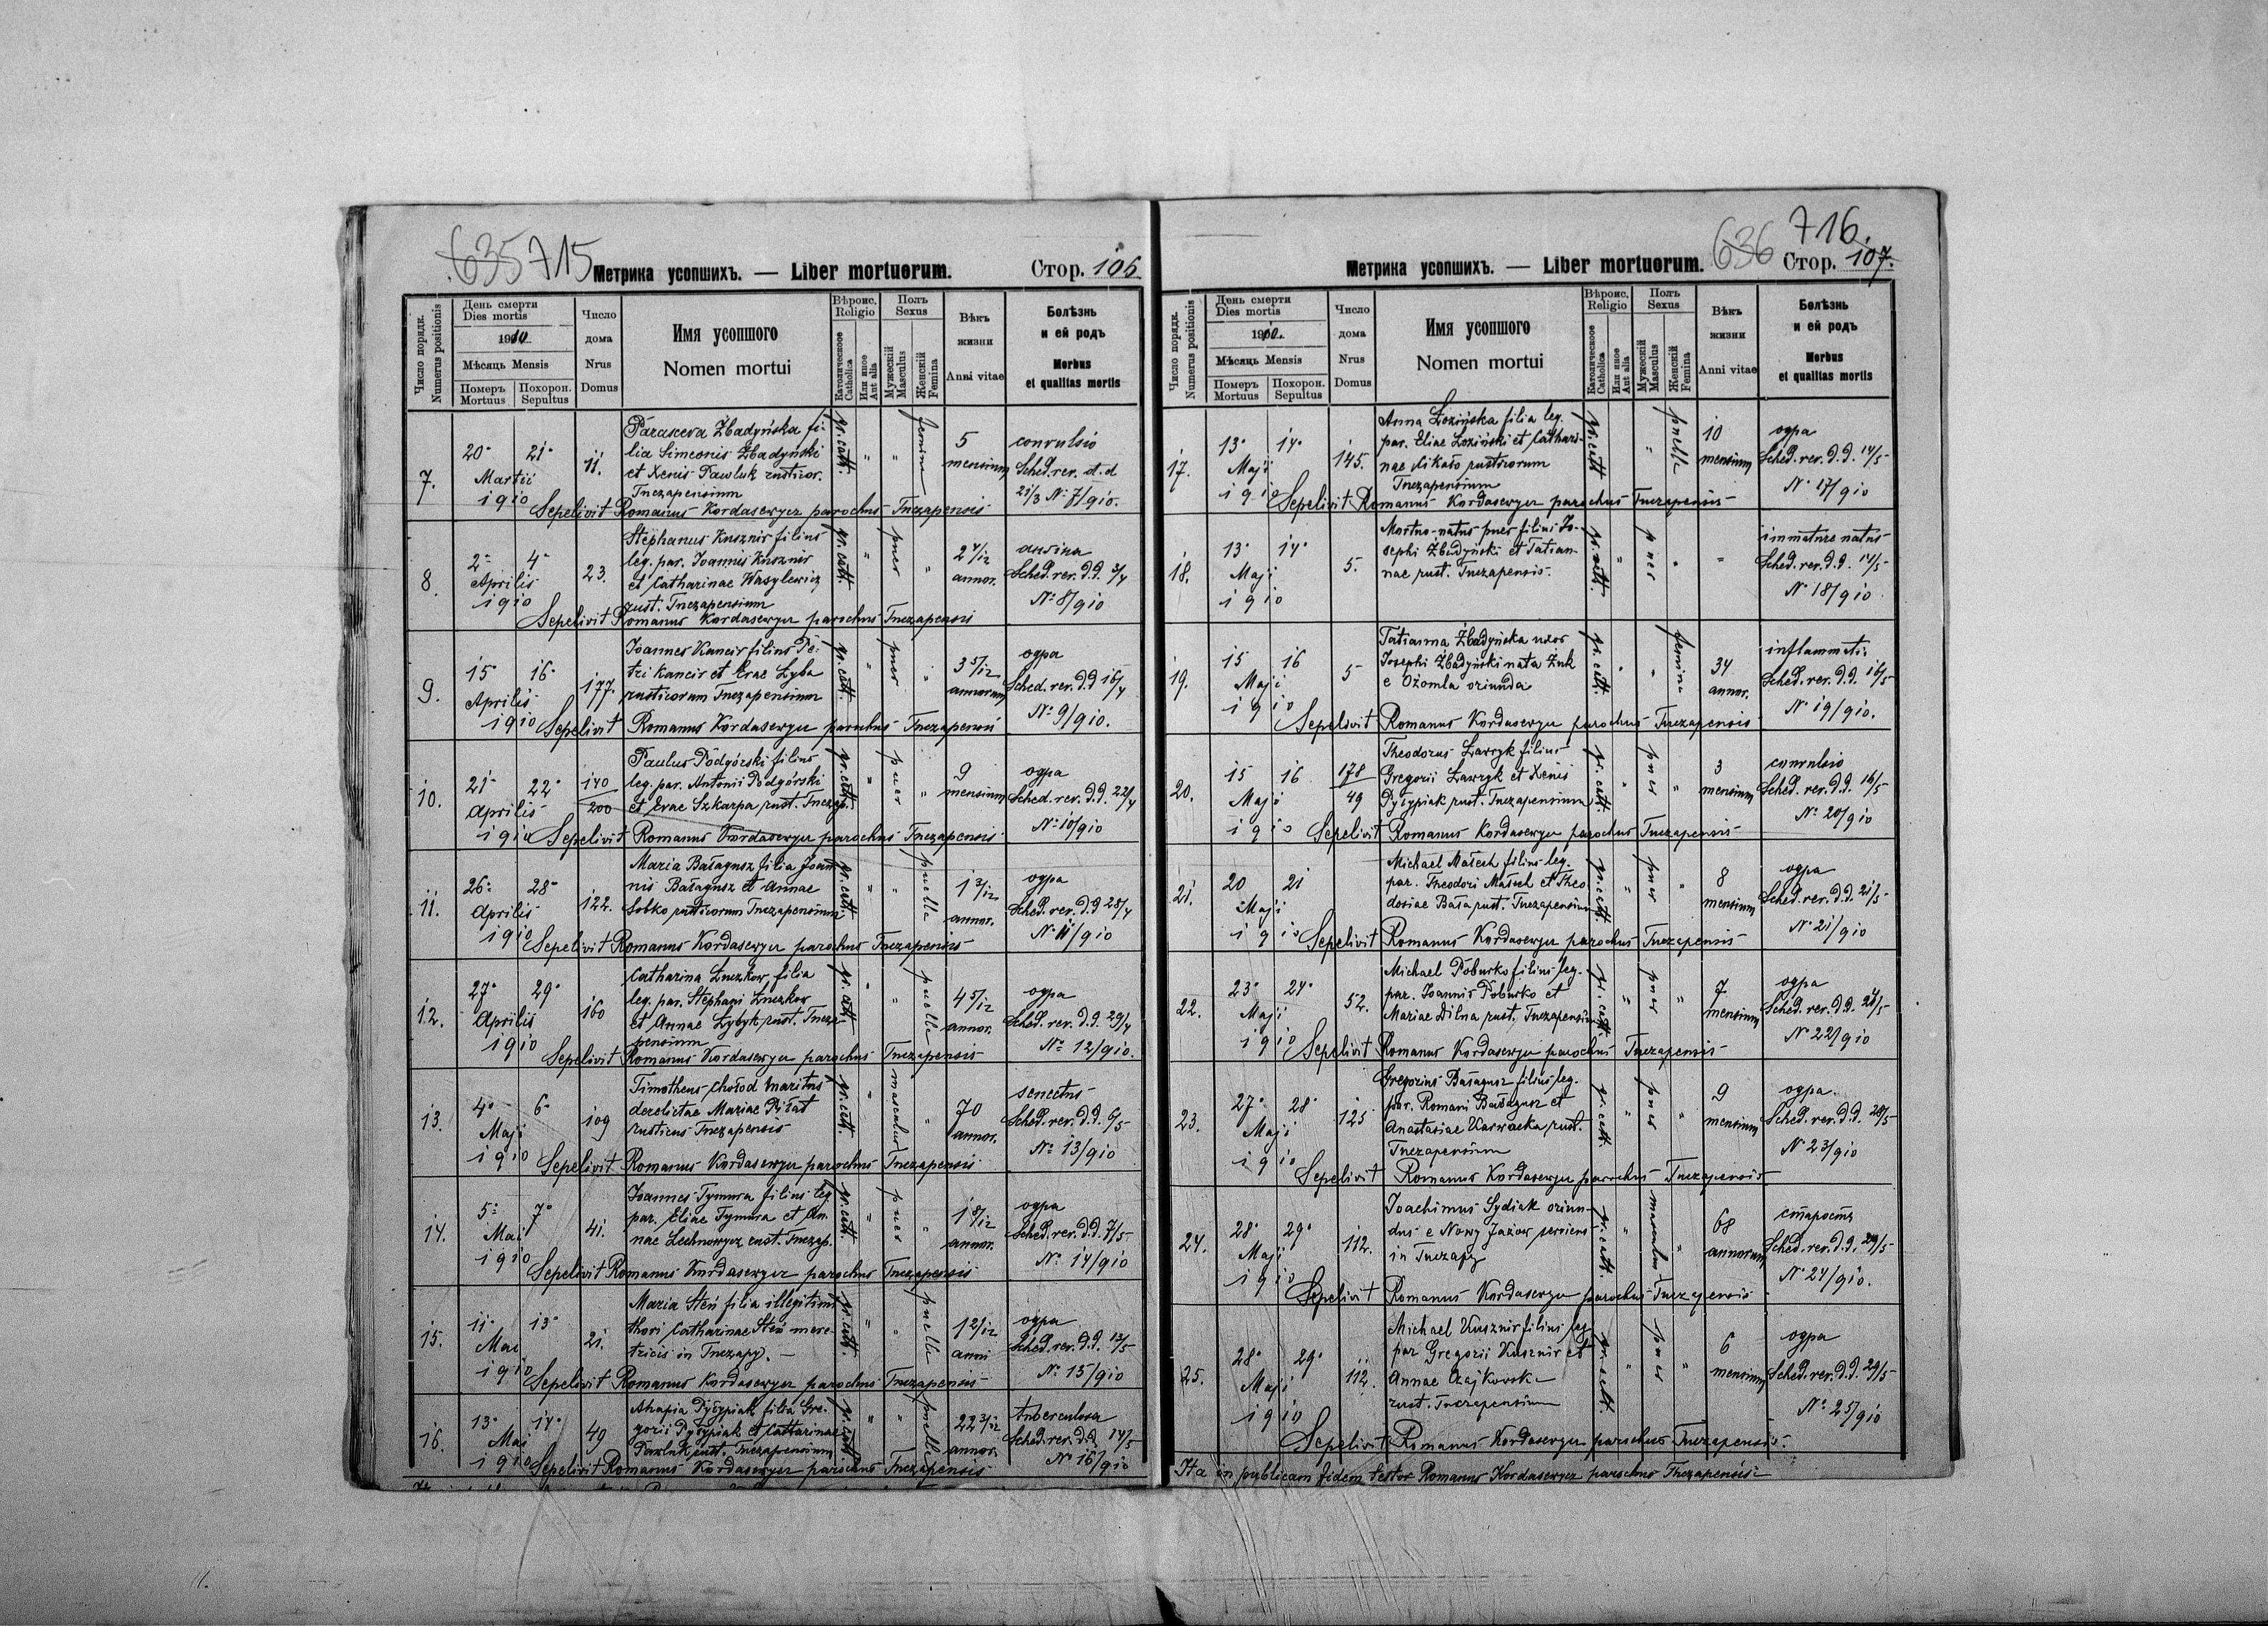 635 715 Метрика усопшихъ. — Liber mortuorum. Стор. 106
Число порядк. Numerus positionis
День смерти Dies mortis
1910
Мѣсяць Mensis
Померъ Mortuus
Похорон. Sepultus
Число дома Nrus Domus
Имя усопшого Nomen mortui
Вѣроис. Religio
Католическое Catholica
Или иное Aut alia
Полъ Sexus
Мужескій Masculus
Женскій Femina
Вѣкъ жизни Anni vitae
Болѣзнь и ей родъ Morbus et qualitas mortis
7. 20 21 Martii 1910 11. gr. cath. " " femina 5 mensium
Parasceva Żbadyńska fi-
lia Simeonis Żbadyński
et Xenis Pawluk rusticor.
Tuczapensium
convulsio
Sched. rev. d. d
21/3 N. 7/910.
Sepelivit Romanus Kordasewycz parochus Tuczapensis
8. 2 4 Aprilis 1910 23. gr. cath. " puer " 2 4/12 annor.
Stephanus Kusznir filius
leg. par. Joannis Kusznir
et Catharinae Wasylewicz
rust. Tuczapensium
angina
Sched. rev. d. d. 3/4
N. 8/910
Sepelivit Romanus Kordasewycz parochus Tuczapensis
9. 15 16 Aprilis 1910 177. gr. cath. " puer " 3 5/12 annorum
Joannes Kancir filius Pe-
tri Kancir et Evae Zyba
rusticorum Tuczapensium
огра
Sched. rev. d. d 16/4
N. 9/910.
Sepelivit Romanus Kordasewycz parochus Tuczapensis
10. 21 22 Aprilis 1910 140/200 gr. cath. " puer " 9 mensium
Paulus Podgórski filius
leg. par. Antonii Podgórski
et Evae Szkarpa rust. Tuczap.
огра
Sched. rev. d. d. 22/4
N. 10/910
Sepelivit Romanus Kordasewycz parochus Tuczapensis
11. 26 28 Aprilis 1910 122. gr. cath. " " puella 1 3/12 annor.
Maria Bałagusz filia Joan-
nis Bałagusz et Annae
Sobko rusticorum Tuczapensium
огра
Sched. rev. d. d 28/4
N. 11/910
Sepelivit Romanus Kordasewycz parochus Tuczapensis
12. 27 29 Aprilis 1910 160 gr. cath. " " puella 4 5/12 annor.
Catharina Łuczkow filia
leg. par. Stephani Łuczkow
et Annae Łybyk rust. Tucza-
pensium
огра
Sched. rev. d. d. 29/4
N. 12/910.
Sepelivit Romanus Kordasewycz parochus Tuczapensis
13. 4 6 Maji 1910 109 gr. cath. " masculus " 70 annor.
Timotheus Chołod maritus
derelictae Mariae Piłat
rusticus Tuczapensis
senectus
Sched. rev. d. d. 6/5
N. 13/910
Sepelivit Romanus Kordasewycz parochus Tuczapensis
14. 5 7 Mai 1910 41. gr. cath. " puer " 1 8/12 annor.
Joannes Tymura filius leg.
par. Eliae Tymura et An-
nae Lechnowycz rust. Tuczap.
огра
Sched. rev. d. d. 7/5
N. 14/910
Sepelivit Romanus Kordasewycz parochus Tuczapensis
15. 11 13 Mai 1910 21. gr. cath. " " puella 1 2/12 anni
Maria Steń filia illegitimi
thori Catharinae Steń mere-
tricis in Tuczapy. —
огра
Sched. rev. d. d. 13/5
N. 15/910
Sepelivit Romanus Kordasewycz parochus Tuczapensis
16. 13 14 Mai 1910 49 gr. cath. " " puella 22 3/12 annor.
Ahapia Pyłypiak filia Gre-
gorii Pyłypiak et Catharinae
Pawluk rust. Tuczapensium
tuberculosa
Sched. rev. d. d 14/5
N. 16/910
Sepelivit Romanus Kordasewycz parochus Tuczapensis
636 716.
Метрика усопшихъ. — Liber mortuorum. Стор. 107.
Число порядк. Numerus positionis
День смерти Dies mortis
1910.
Мѣсяць Mensis
Померъ Mortuus
Похорон. Sepultus
Число дома Nrus Domus
Имя усопшого Nomen mortui
Вѣроис. Religio
Католическое Catholica
Или иное Aut alia
Полъ Sexus
Мужескій Masculus
Женскій Femina
Вѣкъ жизни Anni vitae
Болѣзнь и ей родъ Morbus et qualitas mortis
17. 13 14 Maji 1910 145. gr. cath " puella 10 mensium
Anna Łozińska filia leg.
par. Eliae Łoziński et Cathari-
nae Mikało rusticorum
Tuczapensium
огра
Sched. rev. d. d. 14/5
N. 17/910
Sepelivit Romanus Kordasewycz parochus Tuczapensis
18. 13 14 Maji 1910 5. gr. cath. " puer " "
Mortuo-natus puer filius Jo-
sephi Żbadyński et Tatian-
nae rust. Tuczapensis.
immature natus
Sched. rev. d. d. 14/5
N. 18/910
19. 15 16 Maji 1910 5 gr. cath. " " femina 34 annor.
Tatianna Żbadyńska uxor
Josephi Żbadyński nata Żuk
e Ożomla oriunda
inflammatio
Sched. rev. d. d. 16/5
N. 19/910.
Sepelivit Romanus Kordasewycz parochus Tuczapensis
20. 15 16 Maji 1910 178/49 gr. cath. " puer " 3 mensium
Theodorus Ławryk filius
Gregorii Ławryk et Xenis
Pyłypiak rust. Tuczapensium
convulsio
Sched. rev. d. d. 16/5
N. 20/910
Sepelivit Romanus Kordasewycz parochus Tuczapensis
21. 20 21 Maji 1910 gr. cath. " puer " 8 mensium
Michael Małech filius leg.
par. Theodori Małech et Theo
dosiae Bała rust. Tuczapensium
огра
Sched. rev. d. d. 21/5
N. 21/910
Sepelivit Romanus Kordasewycz parochus Tuczapensis
22. 23 24 Maji 1910 52. gr. cath. " puer " 7 mensium
Michael Poburko filius leg.
par. Joannis Poburko et
Mariae Dilna rust. Tuczapensium
огра
Sched. rev. d. d. 24/5
N. 22/910
Sepelivit Romanus Kordasewycz parochus Tuczapensis
23. 27 28 Maji 1910 125 gr. cath " puer " 9 mensium
Gregorius Bałagusz filius leg.
par. Romani Bałagusz et
Anastasiae Karwacka rust.
Tuczapensium
огра.
Sched. rev. d. d. 28/5
N. 23/910
Sepelivit Romanus Kordasewycz parochus Tuczapensis
24. 28 29 Maji 1910 112. gr. cath. " masculus " 68 annorum
Joachimus Sydiak oriun-
dus e Nowy Jażow serviens
in Tuczapy
старость
Sched. rev. d. d. 29/5
N. 24/910.
Sepelivit Romanus Kordasewycz parochus Tuczapensis
25. 28 29 Maji 1910 112. gr. cath. " puer " 6 mensium
Michael Kusznir filius leg
par Gregorii Kusznir et
Annae Czajkowska
rust. Tuczapensium
огра
Sched. rev. d. d. 29/5
N. 25/910
Sepelivit Romanus Kordasewycz parochus Tuczapensis.
Ita in publicam fidem testor Romanus Kordasewycz parochus Tuczapensis